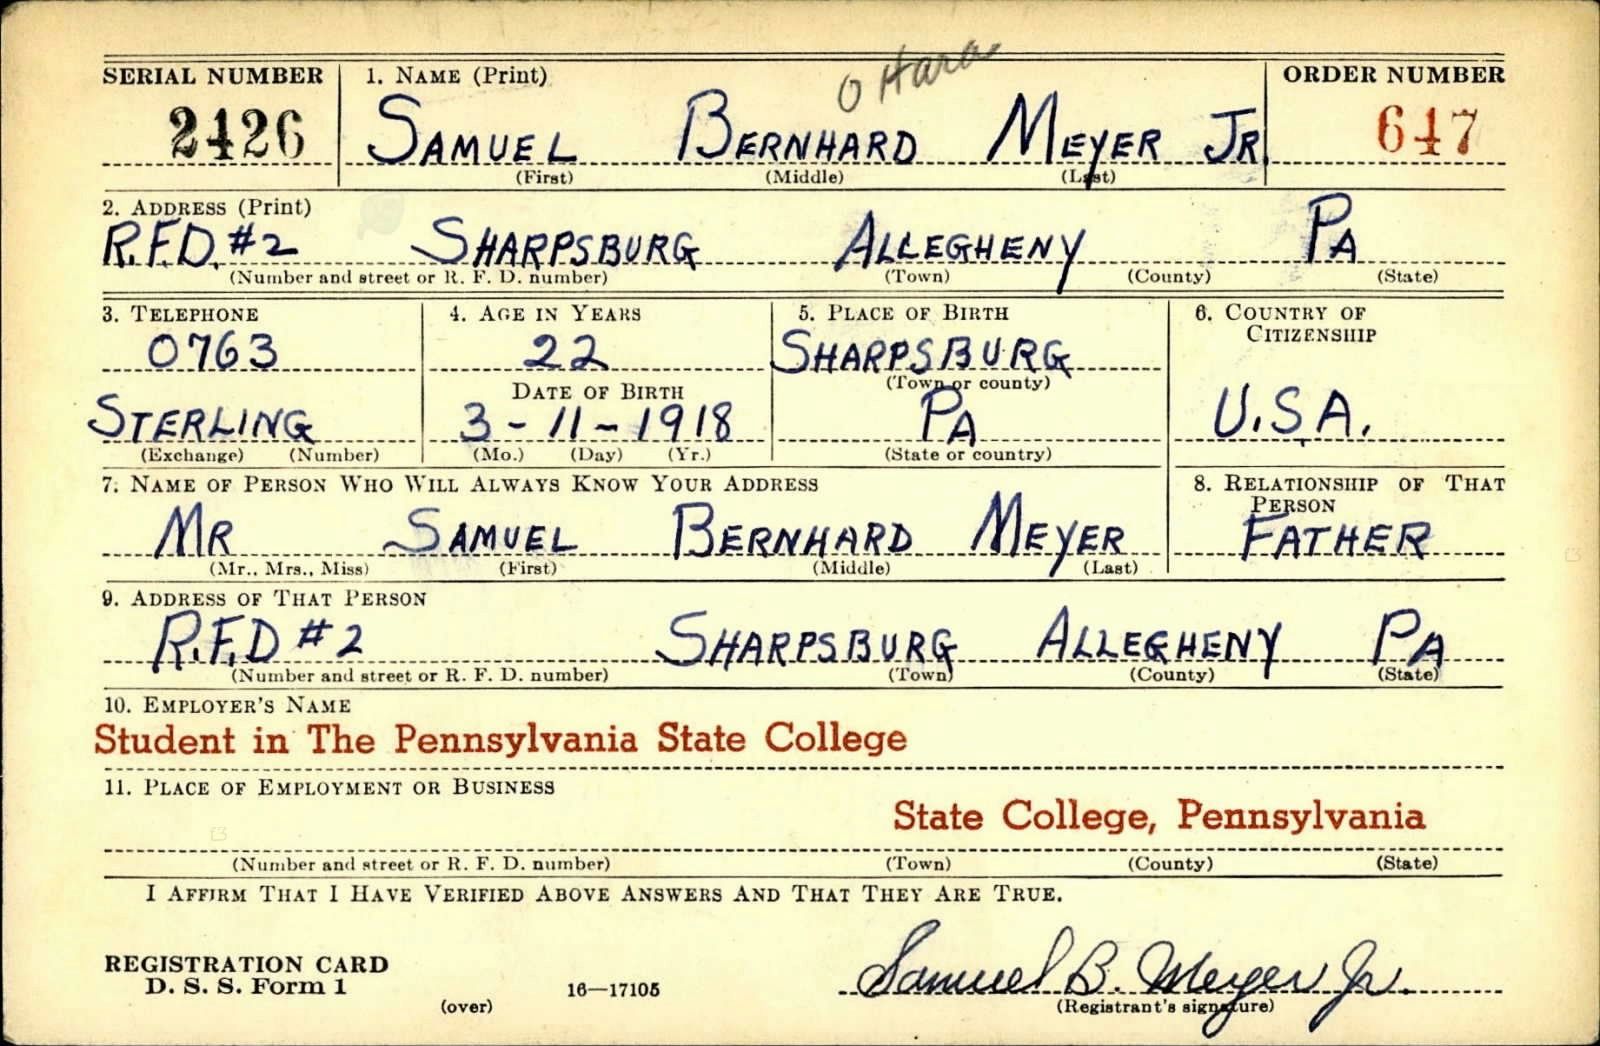 O Hara
SERIAL NUMBER 1. NAME (Print) ORDER NUMBER
2426 SAMUEL BERNHARD MEYER JR. 647
(First) (Middle) (Last)
2. ADDRESS (Print)
R.F.D. #2 SHARPSBURG ALLEGHENY PA
(Number and street or R. F. D. number) (Town) (County) (State)
3. TELEPHONE 4. AGE IN YEARS 5. PLACE OF BIRTH 6. COUNTRY OF CITIZENSHIP
0763 22 SHARPSBURG
DATE OF BIRTH (Town or county)
STERLING 3-11-1918 PA U.S.A.
(Exchange) (Number) (Mo.) (Day) (Yr.) (State or country)
7. NAME OF PERSON WHO WILL ALWAYS KNOW YOUR ADDRESS 8. RELATIONSHIP OF THAT PERSON
MR SAMUEL BERNHARD MEYER FATHER
(Mr., Mrs., Miss) (First) (Middle) (Last)
9. ADDRESS OF THAT PERSON
R.F.D #2 SHARPSBURG ALLEGHENY PA
(Number and street or R. F. D. number) (Town) (County) (State)
10. EMPLOYER'S NAME
Student in The Pennsylvania State College
11. PLACE OF EMPLOYMENT OR BUSINESS
State College, Pennsylvania
(Number and street or R. F. D. number) (Town) (County) (State)
I AFFIRM THAT I HAVE VERIFIED ABOVE ANSWERS AND THAT THEY ARE TRUE.
REGISTRATION CARD
D. S. S. Form 1 16—17105 Samuel B. Meyer Jr.
(over) (Registrant's signature)